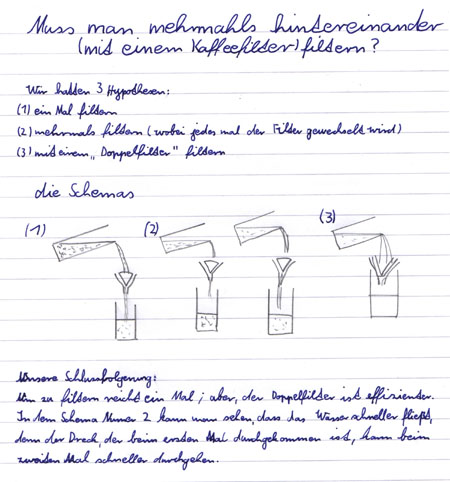 Muss man mehrmahls hintereinander
(mit einem Kaffeefilter) filtern?
Wir hatten 3 Hypothesen:
(1) ein Mal filtern
(2) mehrmals filtern (wobei jedes mal der Filter gewechselt wird)
(3) mit einem „Doppelfilter" filtern
die Schemas
(1) (2) (3)
Unsere Schlussfolgerung:
Um zu filtern reicht ein Mal; aber, der Doppelfilter ist effizienter.
In dem Schema Numer 2 kann man sehen, dass das Wasser schneller fliept,
denn der Dreck, der beim ersten Mal durchgekommen ist, kann beim
zweiten Mal schneller durchgehen.